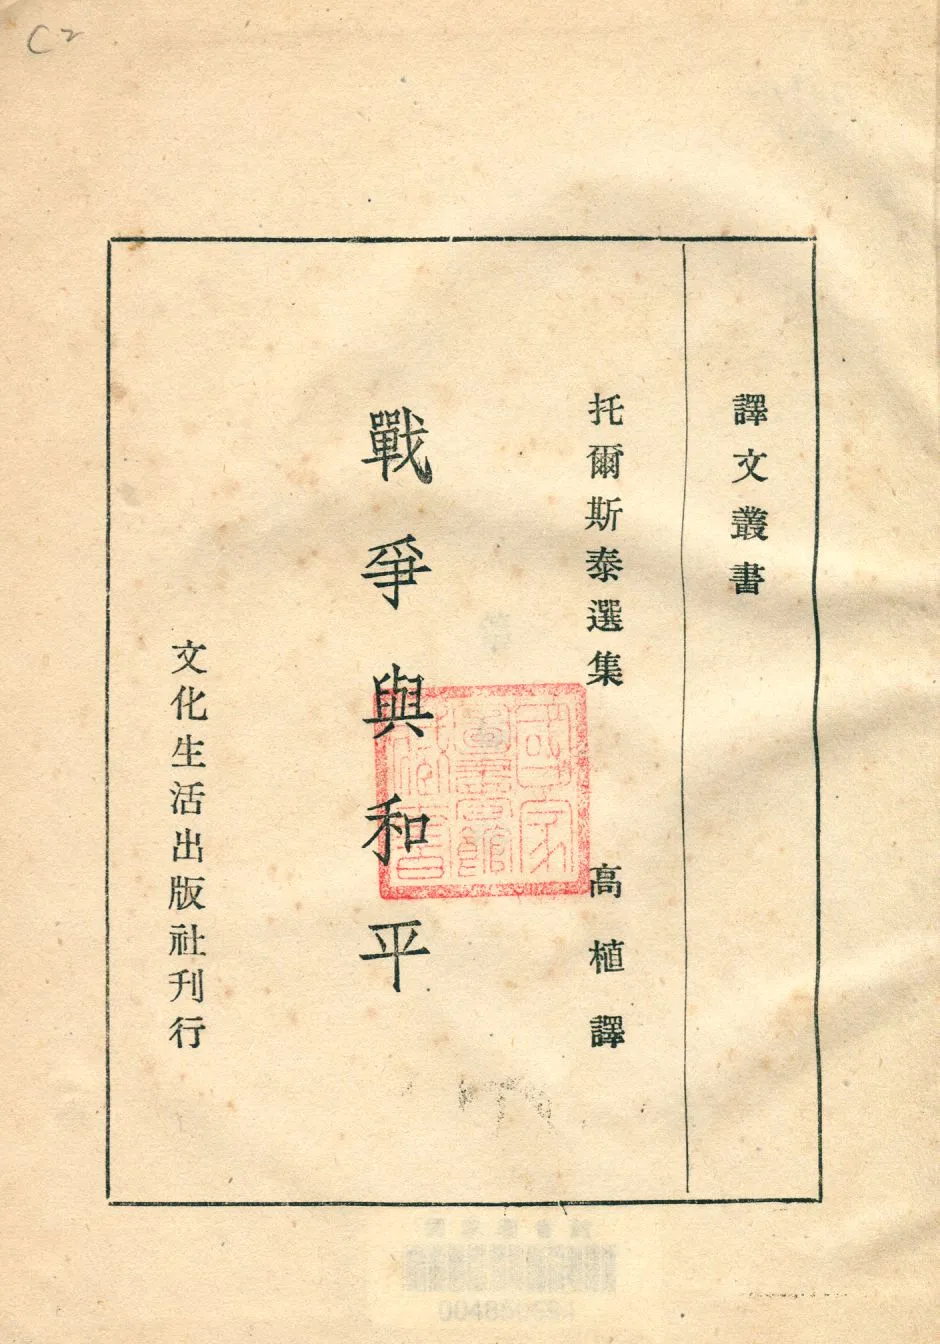 C2
譯文叢書
托爾斯泰選集
高植譯
戰爭與和平
國家
圖書館
藏書
文化生活出版社刊行